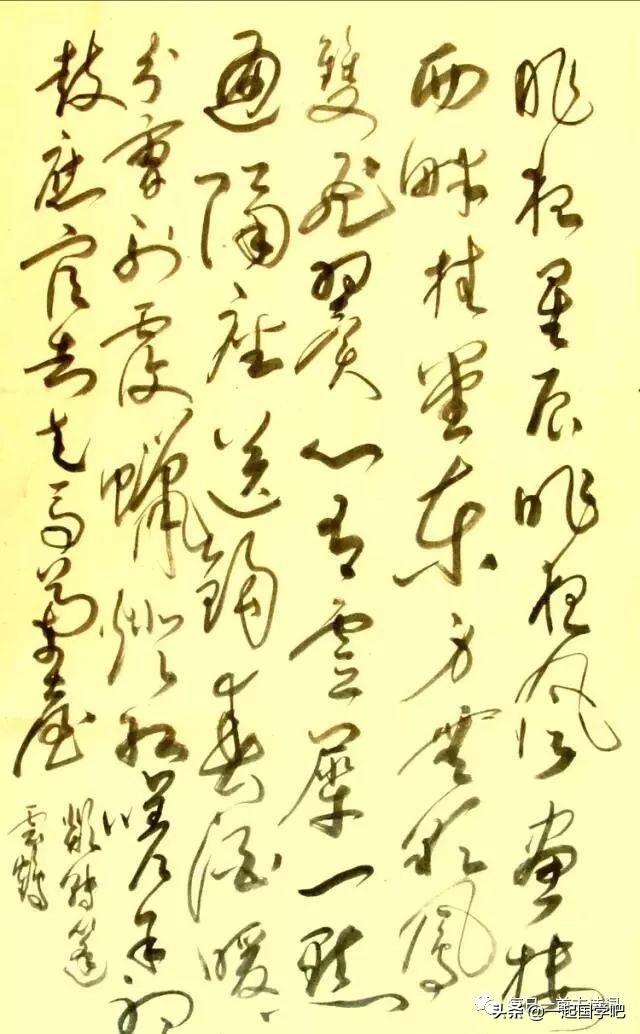 昨夜星辰昨夜風畫樓
西畔桂堂東身無彩鳳
雙飛翼心有靈犀一點
通隔座送鉤春酒暖
分曹射覆蠟燈紅嗟余聽
鼓應官去走馬蘭臺
類轉蓬
雲鶴
头条 @一起国学吧